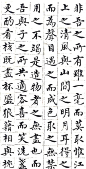 非吾之所有雖一毫而莫取惟江
上之清風與山間之明月耳得之
而為聲目遇之而成色取之無禁
用之不竭是造物者之無盡藏也而
吾與子之所共食客喜而笑洗盞
更酌肴核既盡杯盤狼籍相與枕